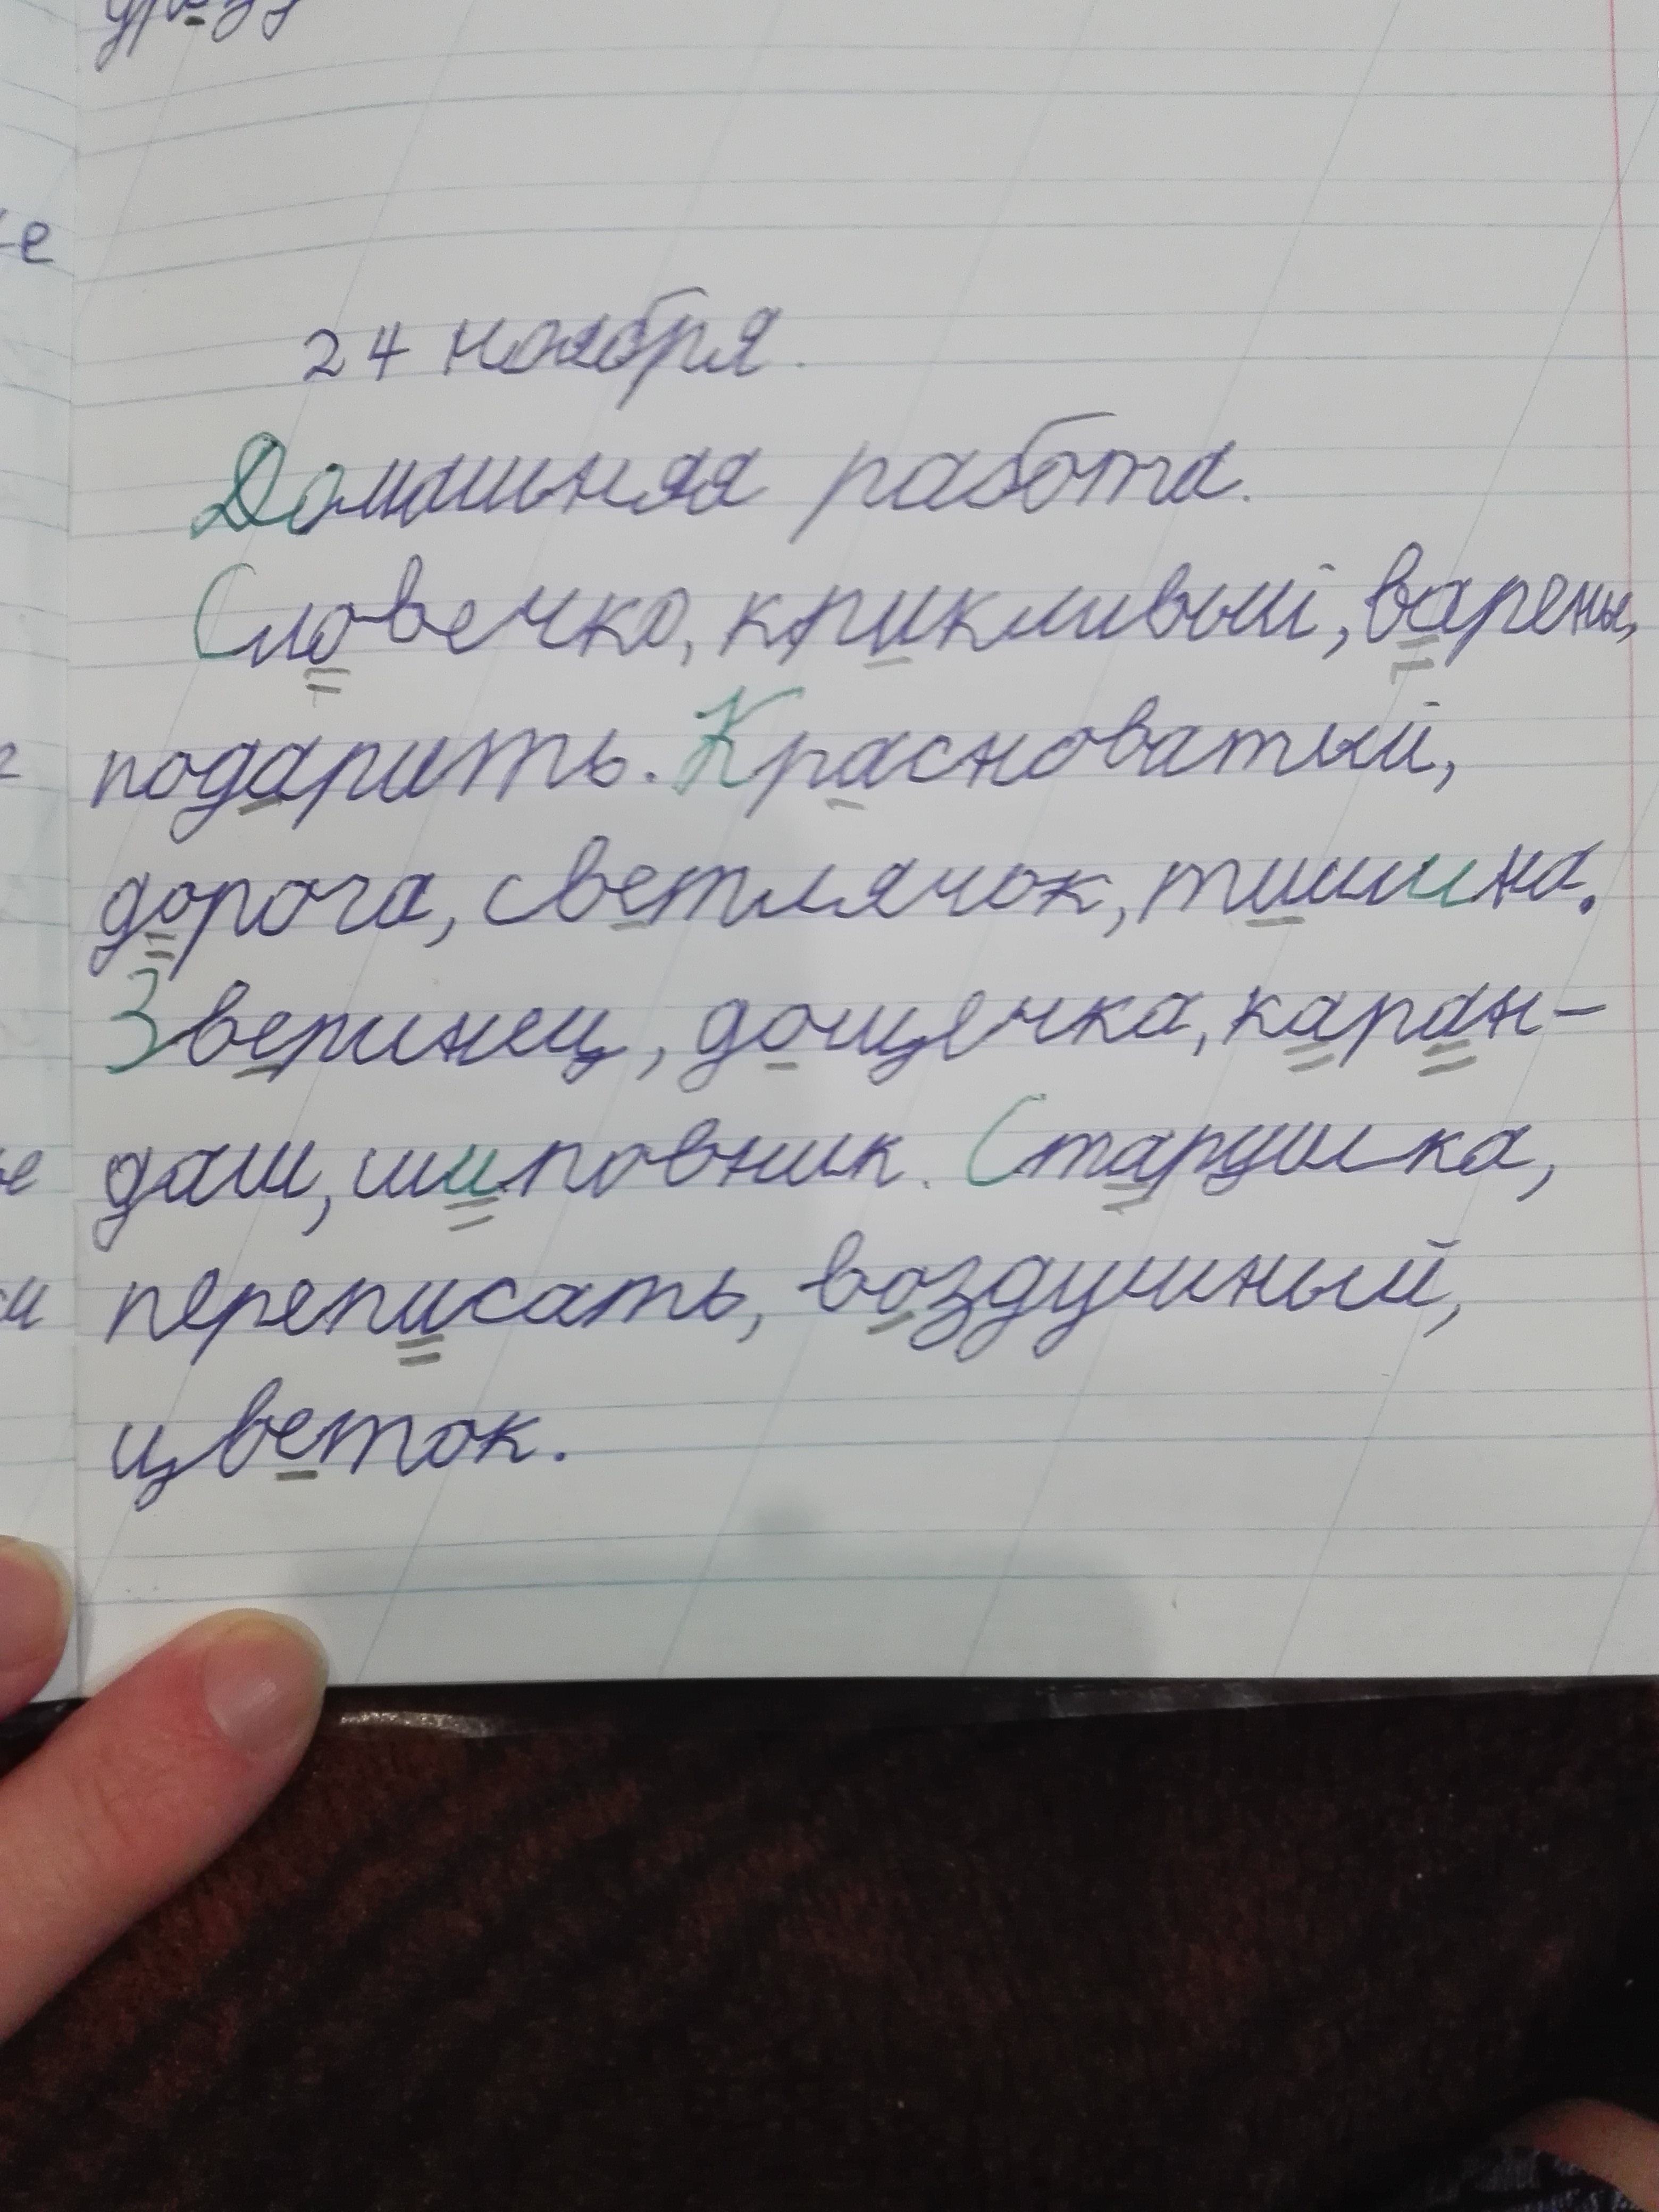 24 ноября.
Домашняя работа.
Словечко, крикливый,
подарить. Красноватый,
дорога, светлячок, тишина.
Зверинец, дощечка, каран-
даш, шиповник. Старушка,
переписать, воздушный,
цветок.